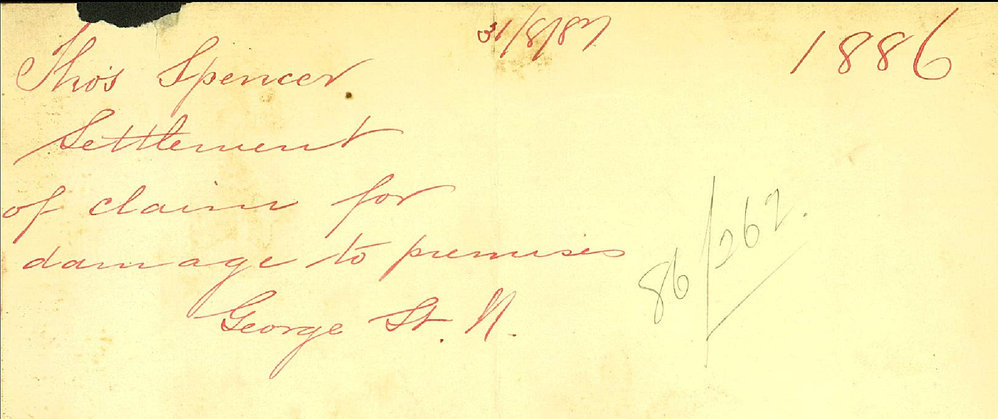 31/8/87
1886
Tho's Spencer
Settlement
of claim for
damage to premises
George St. N.
86/262.